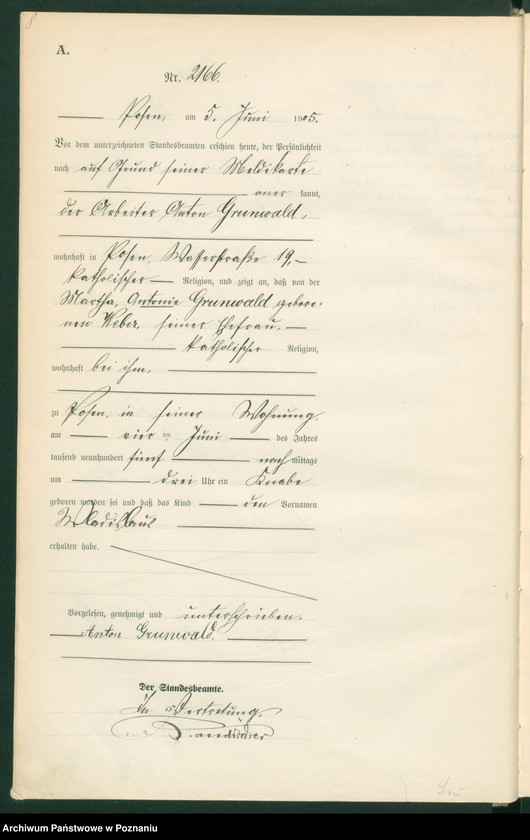 8
A.
Nr. 2166.
Posen, am 5. Juni 1905.
Vor dem unterzeichneten Standesbeamten erschien heute, der Persönlichkeit
nach auf Grund seiner Meldekarte
aner kannt,
der Arbeiter Anton Grunwald,
wohnhaft in Posen, Wasserstraße 19,
katholischer Religion, und zeigt an, daß von der
Martha, Antonie Grunwald gebore-
nen Weber, seiner Ehefrau,
katholischer Religion,
wohnhaft bei ihm,
zu Posen, in seiner Wohnung,
am vier ten Juni des Jahres
tausend neunhundert fünf nach mittags
um drei Uhr ein Knabe
geboren worden sei und daß das Kind den Vornamen
Wladislaus
erhalten habe.
Vorgelesen, genehmigt und unterschrieben.
Anton Grunwald.
Der Standesbeamte.
In Vertretung.
Archiwum Państwowe w Poznaniu